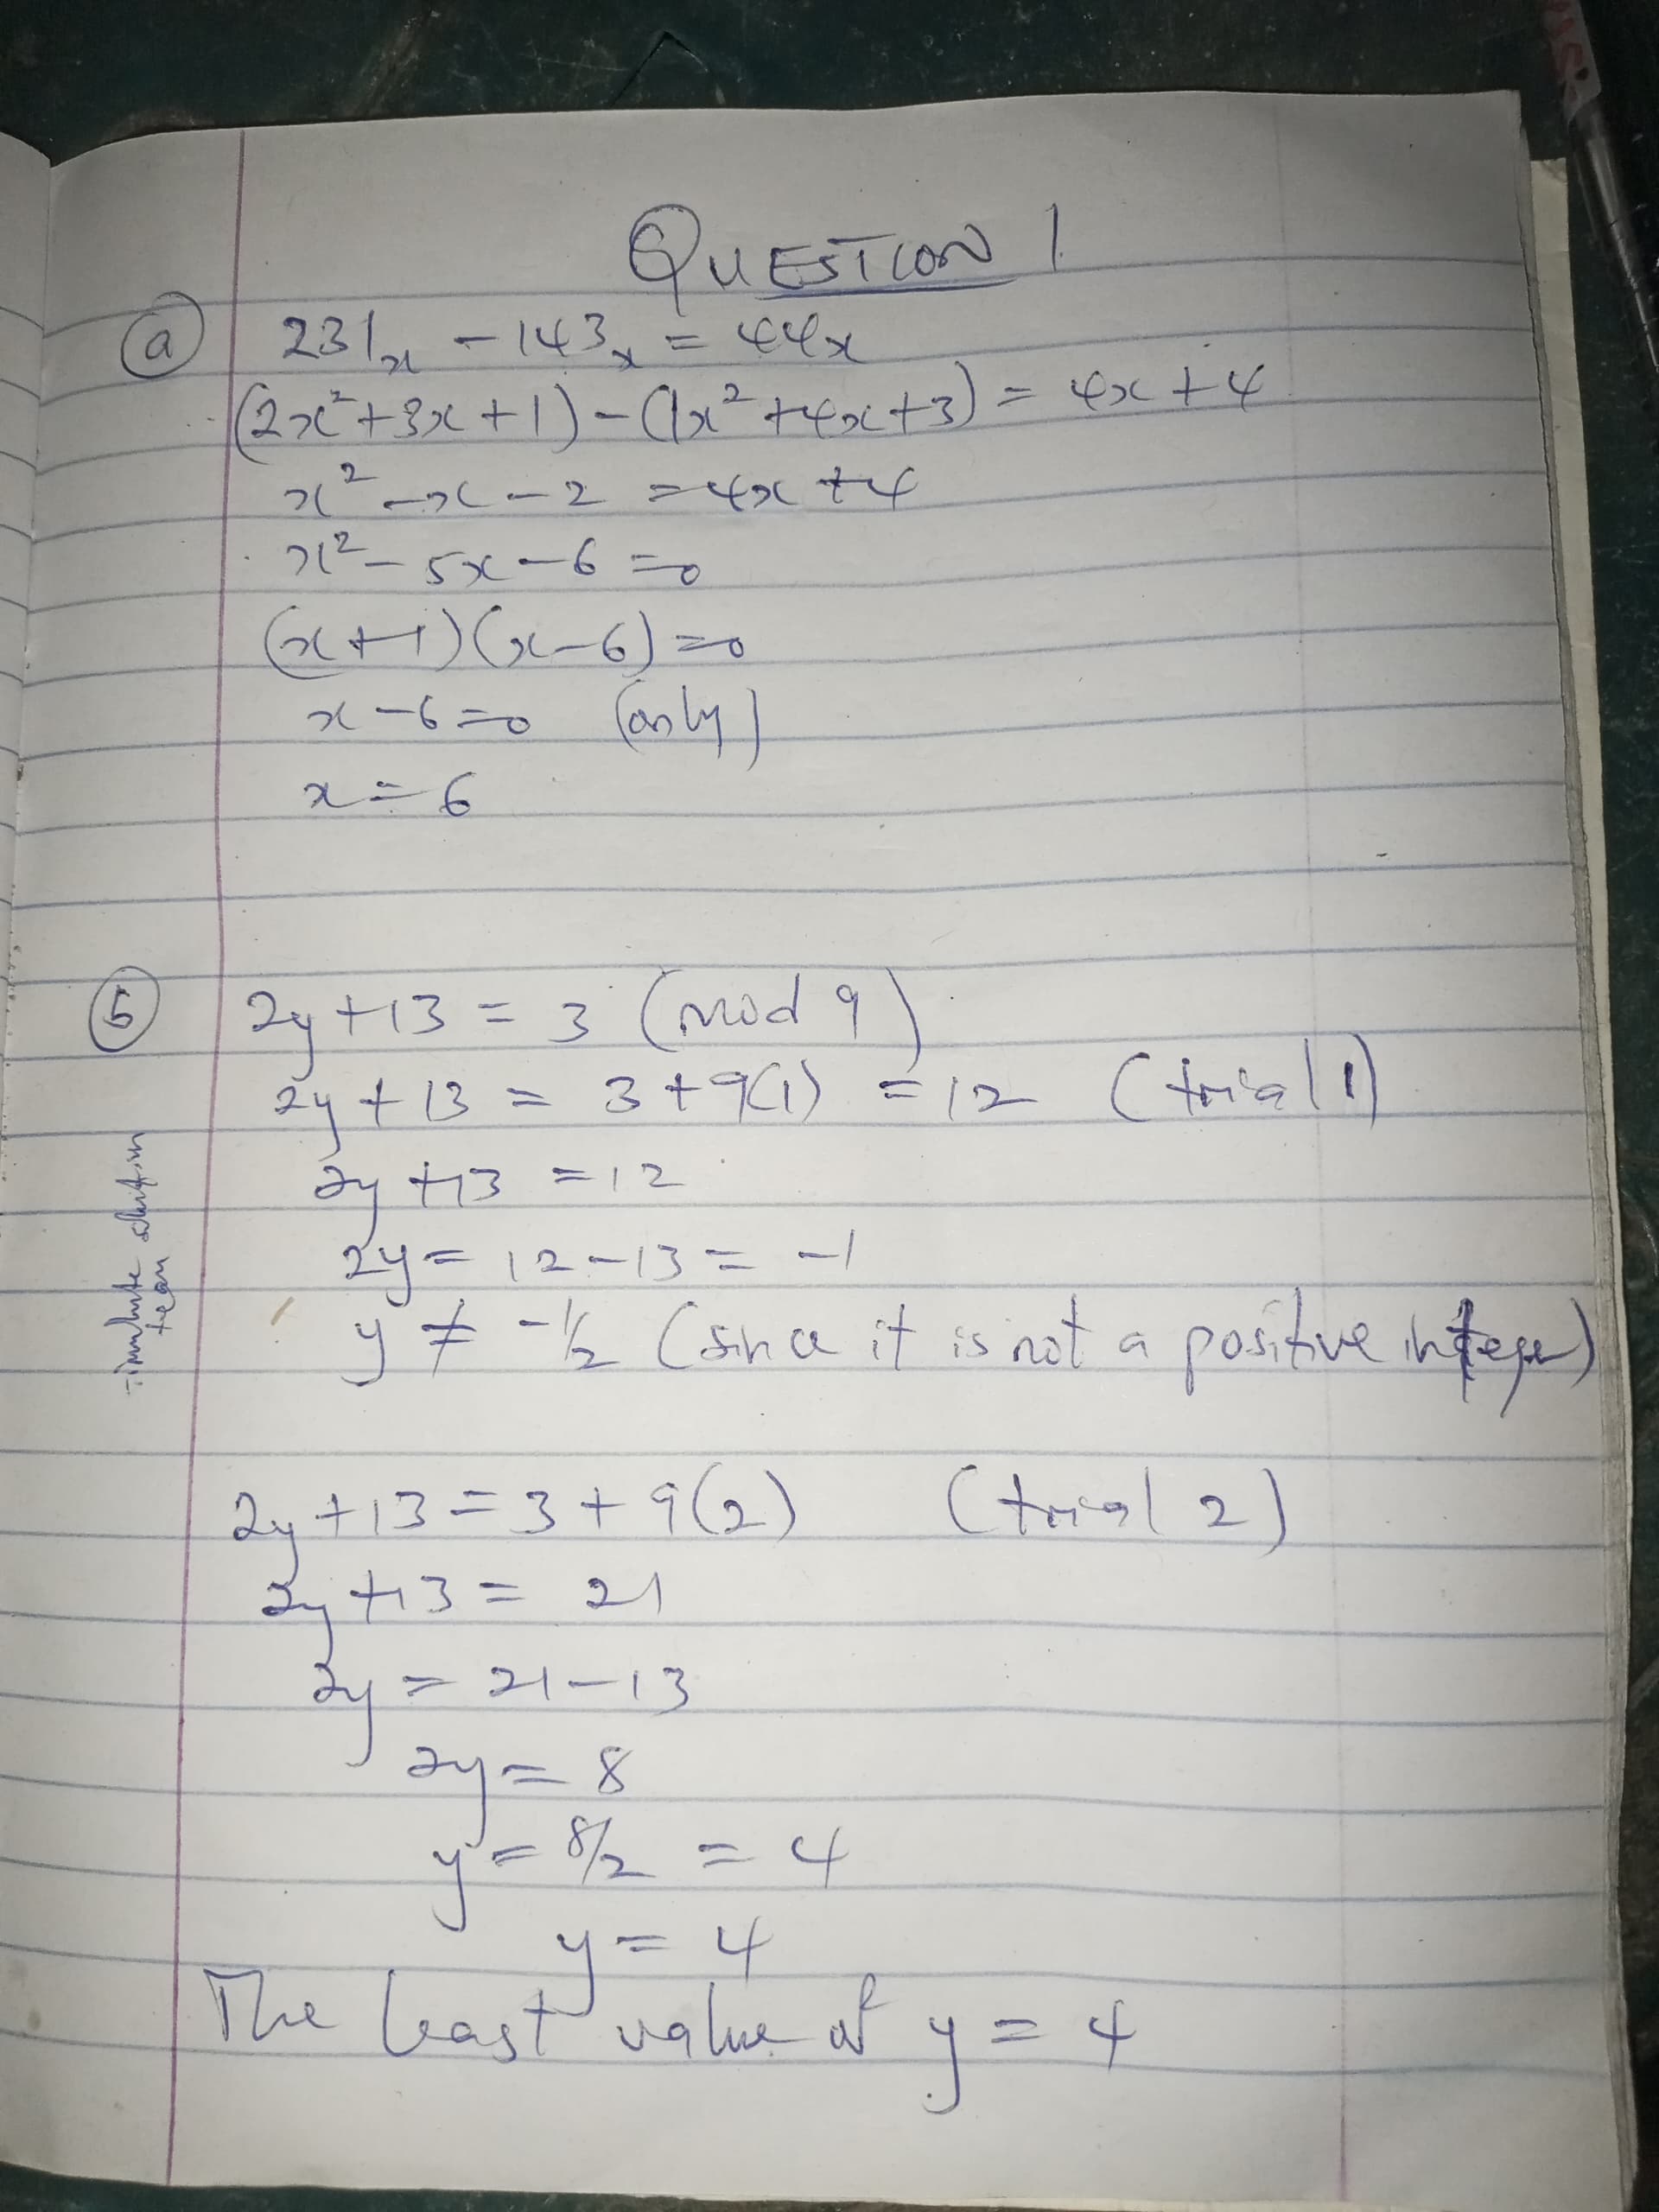 QUESTION 1
(a) 231ₓ - 143ₓ = 44ₓ
(2x² + 3x + 1) - (1x² + 4x + 3) = 4x + 4
x² - x - 2 = 4x + 4
x² - 5x - 6 = 0
(x + 1)(x - 6) = 0
x - 6 = 0 (only)
x = 6
(b) 2y + 13 = 3 (mod 9)
2y + 13 = 3 + 9(1) = 12 (trial 1)
2y + 13 = 12
2y = 12 - 13 = -1
y ≠ -1/2 (since it is not a positive integer)
team
2y + 13 = 3 + 9(2) (trial 2)
2y + 13 = 21
2y = 21 - 13
2y = 8
y = 8/2 = 4
y = 4
The least value of y = 4